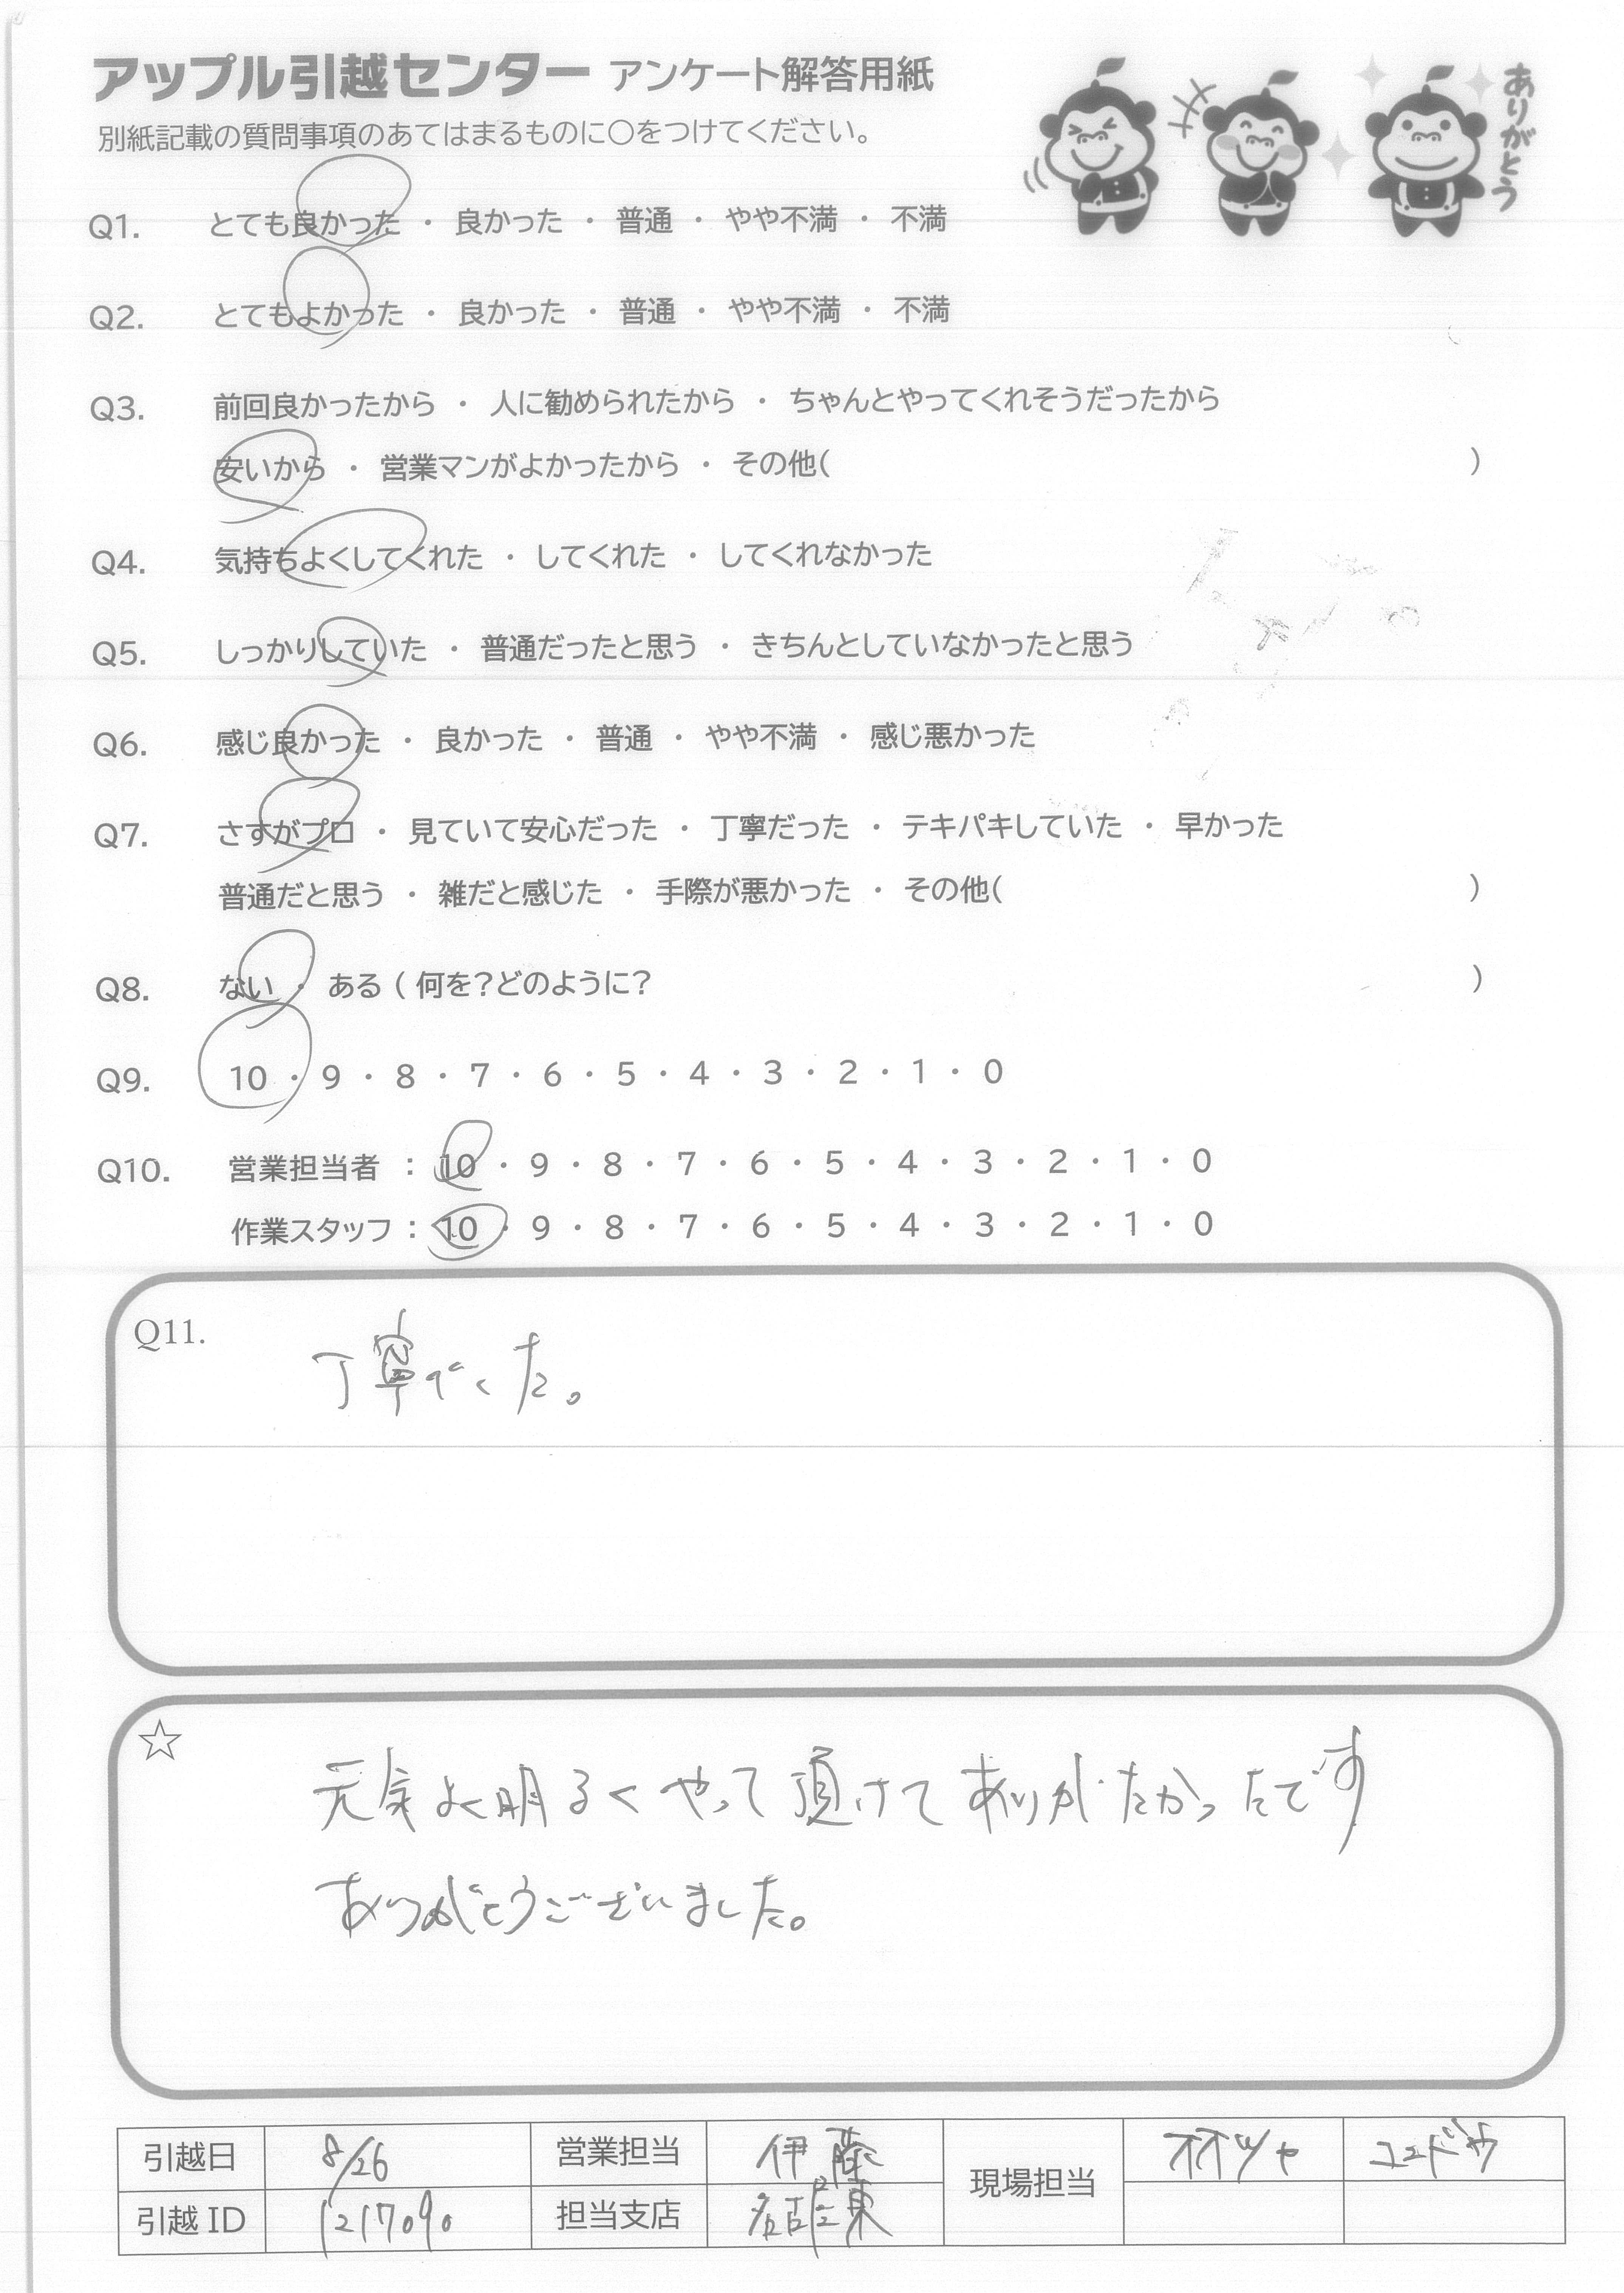 アップル引越センター アンケート解答用紙
別紙記載の質問事項のあてはまるものに○をつけてください。
ありがとう
Q1. とても良かった ・ 良かった ・ 普通 ・ やや不満 ・ 不満
Q2. とてもよかった ・ 良かった ・ 普通 ・ やや不満 ・ 不満
Q3. 前回良かったから ・ 人に勧められたから ・ ちゃんとやってくれそうだったから
安いから ・ 営業マンがよかったから ・ その他( )
Q4. 気持ちよくしてくれた ・ してくれた ・ してくれなかった
Q5. しっかりしていた ・ 普通だったと思う ・ きちんとしていなかったと思う
Q6. 感じ良かった ・ 良かった ・ 普通 ・ やや不満 ・ 感じ悪かった
Q7. さすがプロ ・ 見ていて安心だった ・ 丁寧だった ・ テキパキしていた ・ 早かった
普通だと思う ・ 雑だと感じた ・ 手際が悪かった ・ その他( )
Q8. ない ・ ある ( 何を?どのように? )
Q9. 10 ・ 9 ・ 8 ・ 7 ・ 6 ・ 5 ・ 4 ・ 3 ・ 2 ・ 1 ・ 0
Q10. 営業担当者 : 10 ・ 9 ・ 8 ・ 7 ・ 6 ・ 5 ・ 4 ・ 3 ・ 2 ・ 1 ・ 0
作業スタッフ : 10 ・ 9 ・ 8 ・ 7 ・ 6 ・ 5 ・ 4 ・ 3 ・ 2 ・ 1 ・ 0
Q11. 丁寧でした。
☆ 元気よく明るくやって頂けてありがたかったです
ありがとうございました。
引越日 8/26 営業担当 伊藤 現場担当 オオツヤ
引越ID 1217090 担当支店 名古屋東